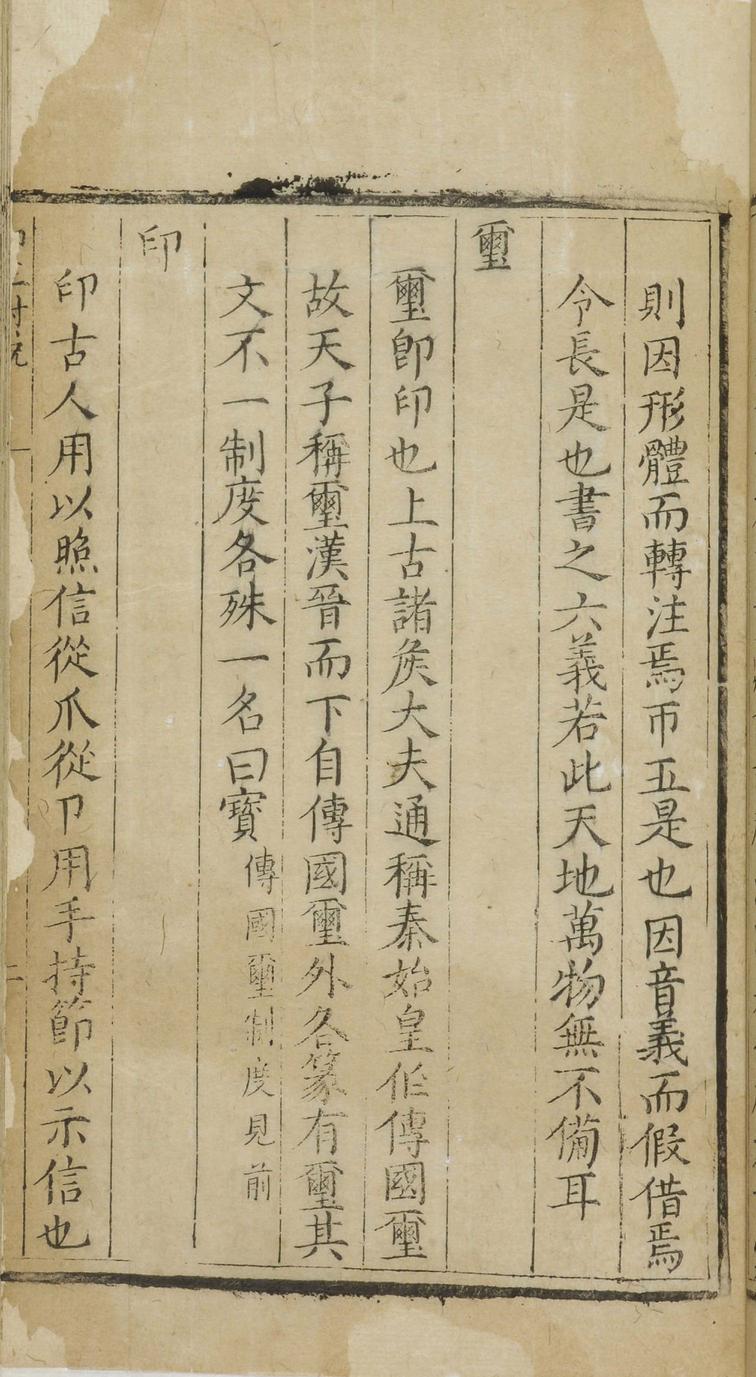 則因形體而轉注焉帀五是也因音義而假借焉
令長是也書之六義若此天地萬物無不備耳
璽
璽卽印也上古諸矦大夫通稱秦始皇作傳國璽
故天子稱璽漢晉而下自傳國璽外各篆有璽其
文不一制度各殊一名曰寶傳國璽制度見前
印
印古人用以照信從爪從卩用手持節以示信也